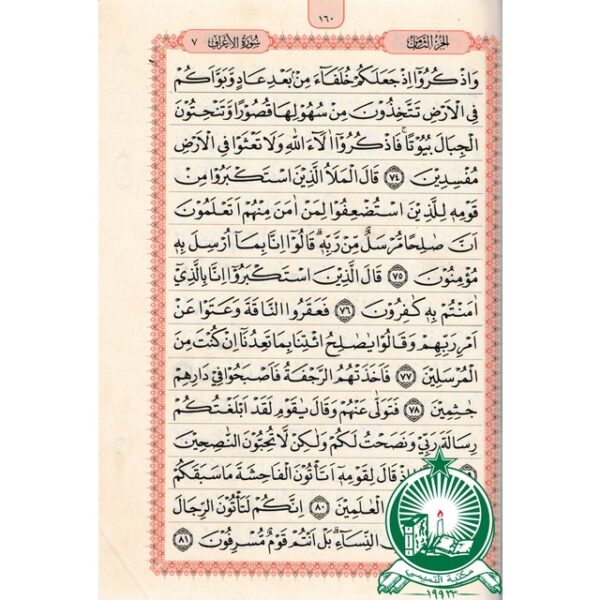 ١٦٠
الجزء الثامن
سورة الأعراف ٧
وَاذْكُرُوا اِذْ جَعَلَكُمْ خُلَفَاءَ مِنْ بَعْدِ عَادٍ وَبَوَّاَكُمْ
فِي الْاَرْضِ تَتَّخِذُونَ مِنْ سُهُولِهَا قُصُورًا وَتَنْحِتُونَ
الْجِبَالَ بُيُوتًا فَاذْكُرُوا اٰلَاءَ اللّٰهِ وَلَا تَعْثَوْا فِي الْاَرْضِ
مُفْسِدِينَ ٧٤ قَالَ الْمَلَاُ الَّذِينَ اسْتَكْبَرُوا مِنْ
قَوْمِهِ لِلَّذِينَ اسْتُضْعِفُوا لِمَنْ اٰمَنَ مِنْهُمْ اَتَعْلَمُونَ
اَنَّ صَالِحًا مُرْسَلٌ مِنْ رَبِّهِ قَالُوا اِنَّا بِمَا اُرْسِلَ بِهِ
مُؤْمِنُونَ ٧٥ قَالَ الَّذِينَ اسْتَكْبَرُوا اِنَّا بِالَّذِي
اٰمَنْتُمْ بِهِ كَافِرُونَ ٧٦ فَعَقَرُوا النَّاقَةَ وَعَتَوْا عَنْ
اَمْرِ رَبِّهِمْ وَقَالُوا يَاصَالِحُ ائْتِنَا بِمَا تَعِدُنَا اِنْ كُنْتَ مِنَ
الْمُرْسَلِينَ ٧٧ فَاَخَذَتْهُمُ الرَّجْفَةُ فَاَصْبَحُوا فِي دَارِهِمْ
جَاثِمِينَ ٧٨ فَتَوَلّٰى عَنْهُمْ وَقَالَ يَاقَوْمِ لَقَدْ اَبْلَغْتُكُمْ
رِسَالَةَ رَبِّي وَنَصَحْتُ لَكُمْ وَلٰكِنْ لَا تُحِبُّونَ النَّاصِحِينَ
اِذْ قَالَ لِقَوْمِهِ اَتَأْتُونَ الْفَاحِشَةَ مَا سَبَقَكُمْ
الْعَالَمِينَ ٨٠ اِنَّكُمْ لَتَأْتُونَ الرِّجَالَ
النِّسَاءِ بَلْ اَنْتُمْ قَوْمٌ مُسْرِفُونَ ٨١
مكتبة النسيمي